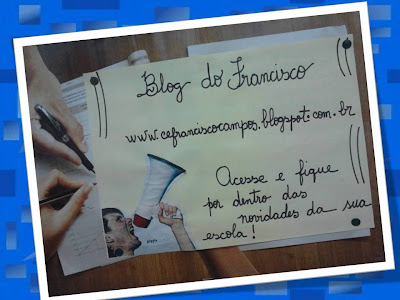 Blog do Francisco
www.cefranciscocampos.blogspot.com.br
Acesse e fique
por dentro das
novidades da sua
escola!